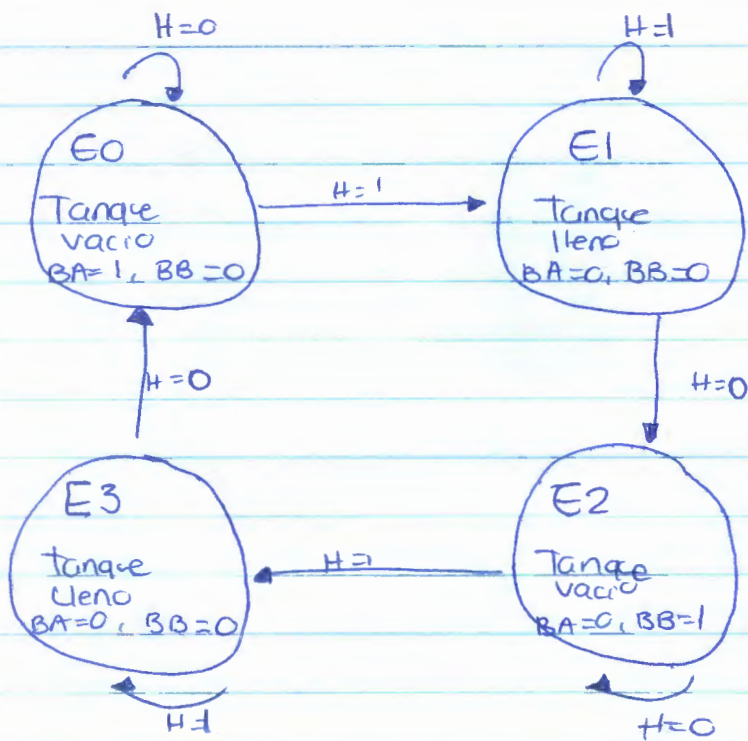 H=0
H=1
E0
Tanque
vacio
BA=1, BB=0
H=1
E1
Tanque
lleno
BA=0, BB=0
H=0
H=0
E3
Tanque
lleno
BA=0, BB=0
H=1
E2
Tanque
vacio
BA=0, BB=1
H=1
H=0